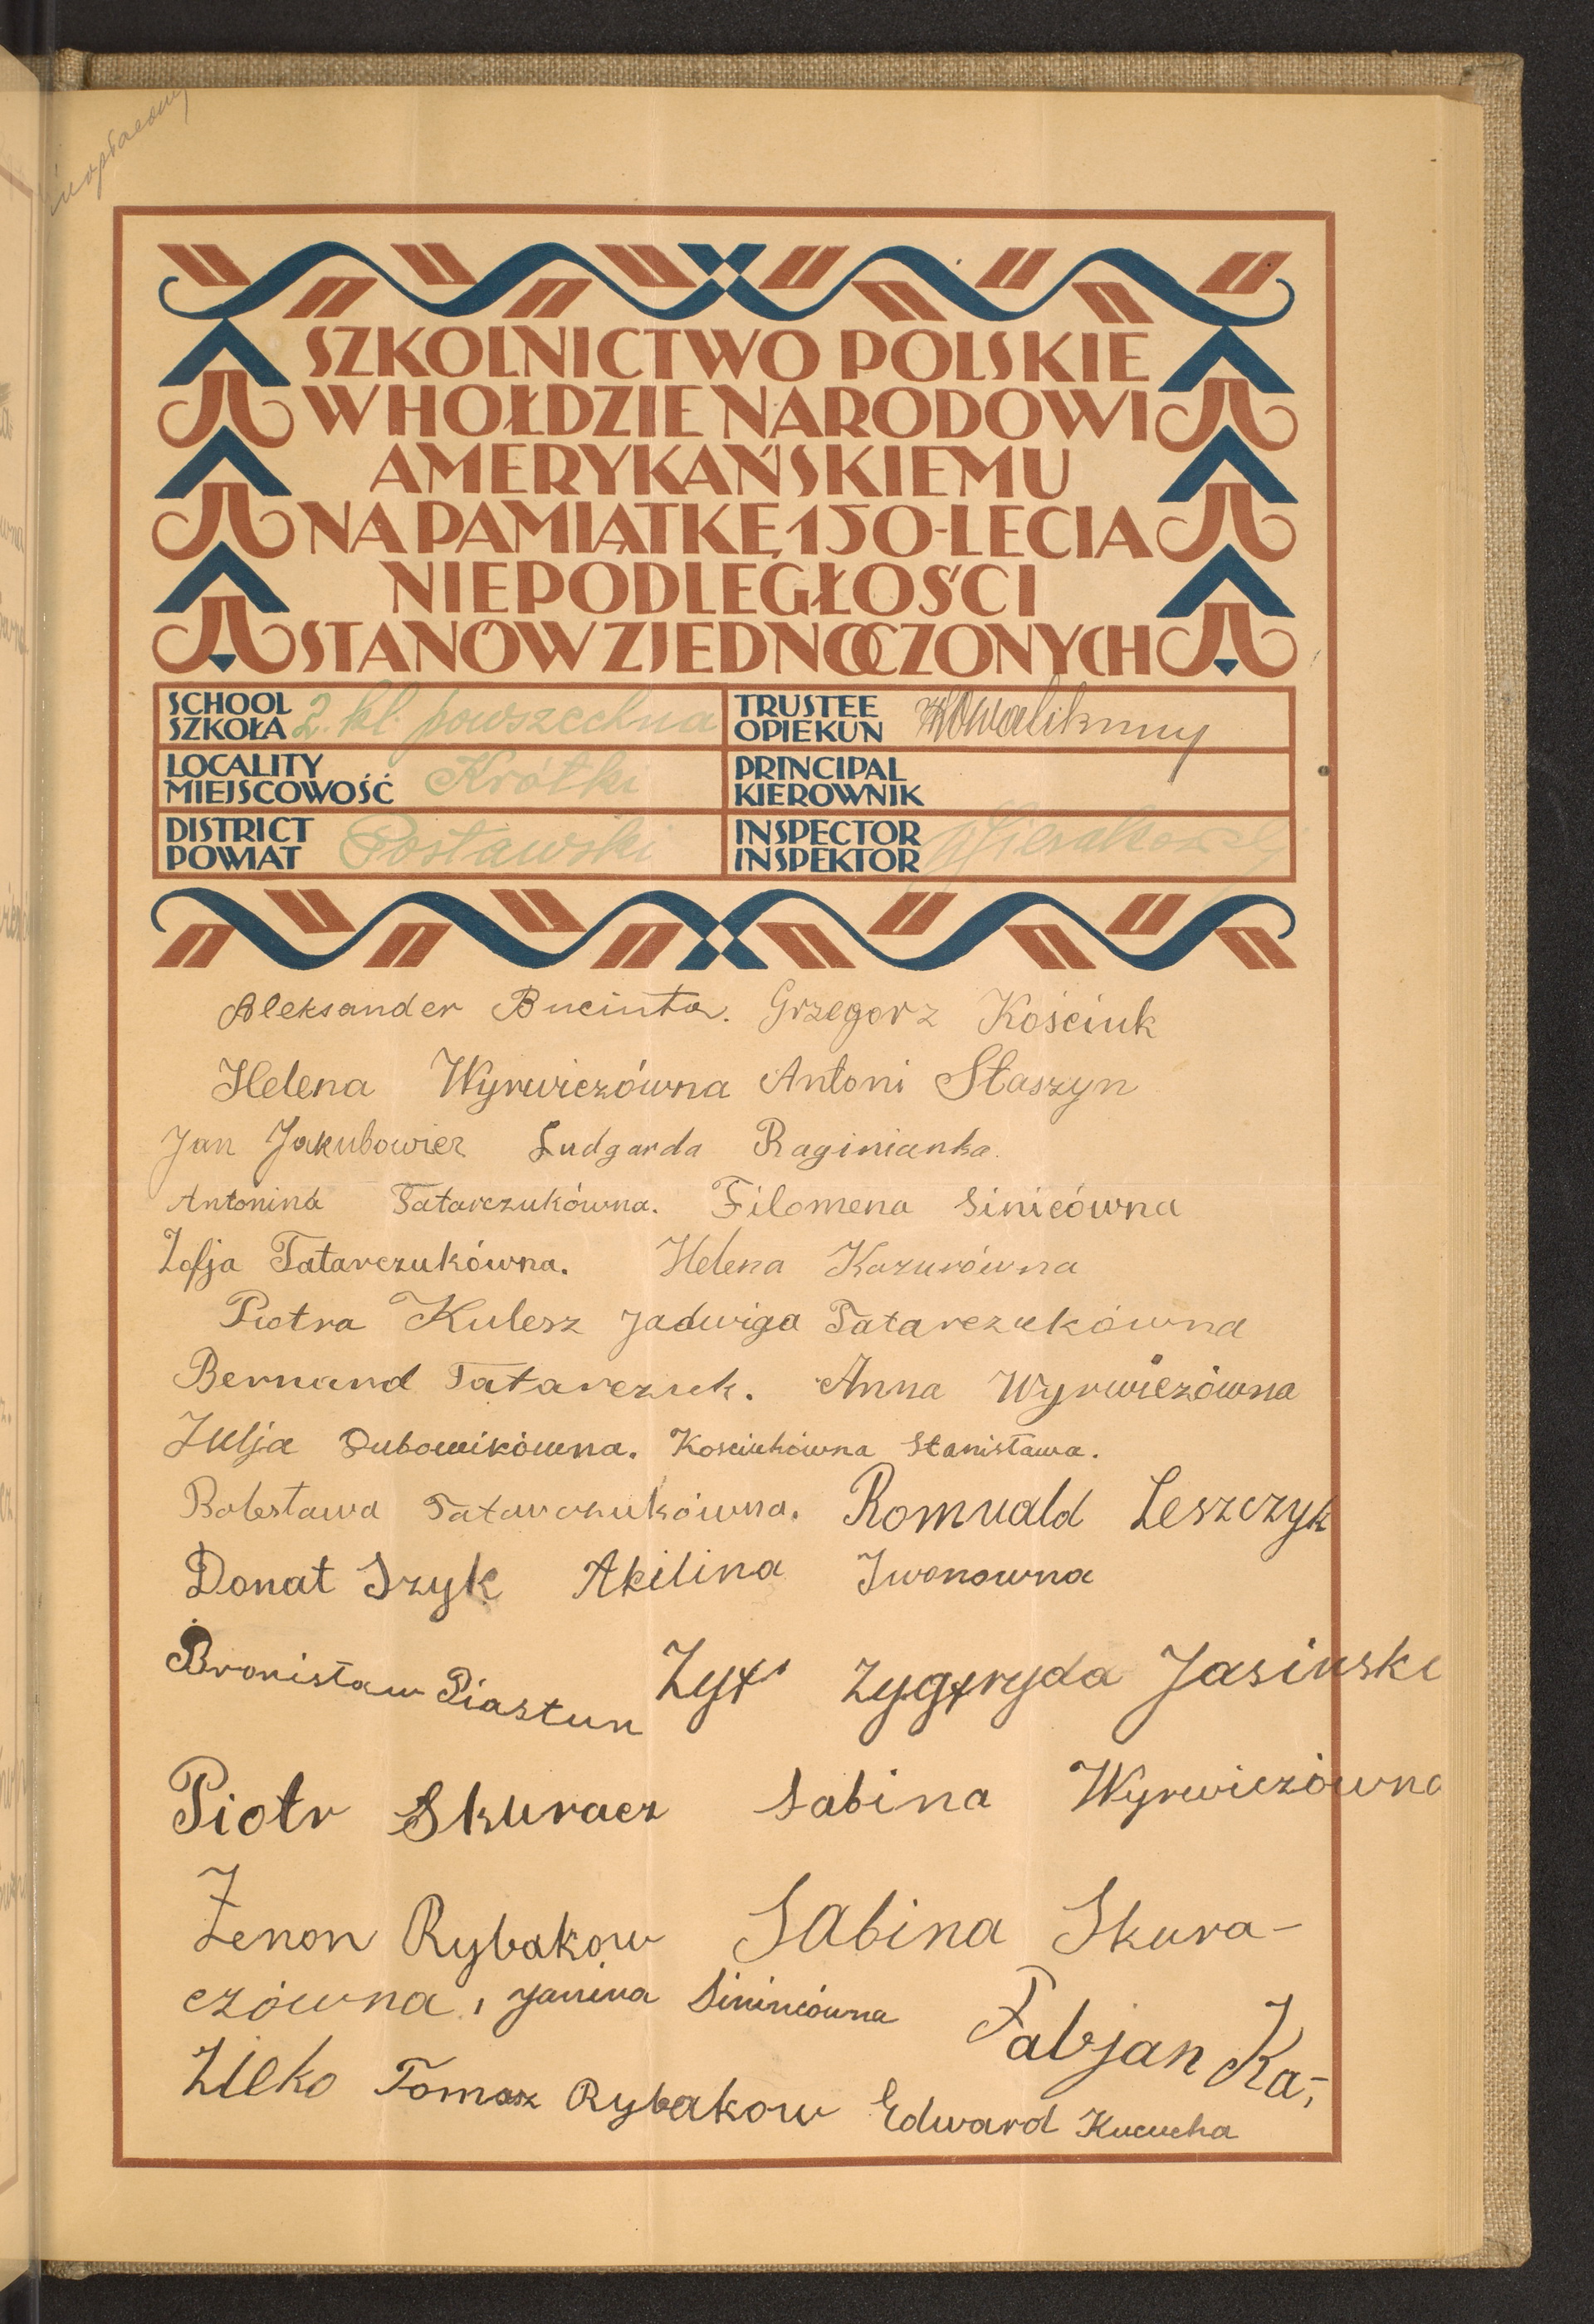 SZKOLNICTWO POLSKIE
W HOŁDZIE NARODOWI
AMERYKAŃSKIEMU
NA PAMIĄTKĘ 150-LECIA
NIEPODLEGŁOŚCI
STANÓW ZJEDNOCZONYCH
SCHOOL
SZKOŁA 2. kl. powszechna
LOCALITY
MIEJSCOWOŚĆ Krótki
DISTRICT
POWIAT Postawski
TRUSTEE
OPIEKUN
PRINCIPAL
KIEROWNIK
INSPECTOR
INSPEKTOR
Aleksander Bucinta. Grzegorz Kościuk
Helena Wyrwiczówna Antoni Staszyn
Jan Jakubowicz Ludgarda Raginianka.
Antonina Tatarczukówna. Filomena Sinicówna
Zofja Tatarczukówna. Helena Kazurówna
Piotra Kulesz Jadwiga Tatarczukówna
Bernard Tatarczuk. Anna Wyrwiczówna
Julja Dubowikówna. Kosciukówna Stanisława.
Bolesława Tatarczukówna. Romuald Leszczyk
Donat Szyk Akilina Iwonowna
Bronisław Piastun Zyf Zygfryda Jasinski
Piotr Skuracz Sabina Wyrwiczówna
Zenon Rybakow Sabina Skura-
czówna, Janina Sinicówna Fabjan Ka-
Zilko Tomasz Rybakow Edward Kucucha